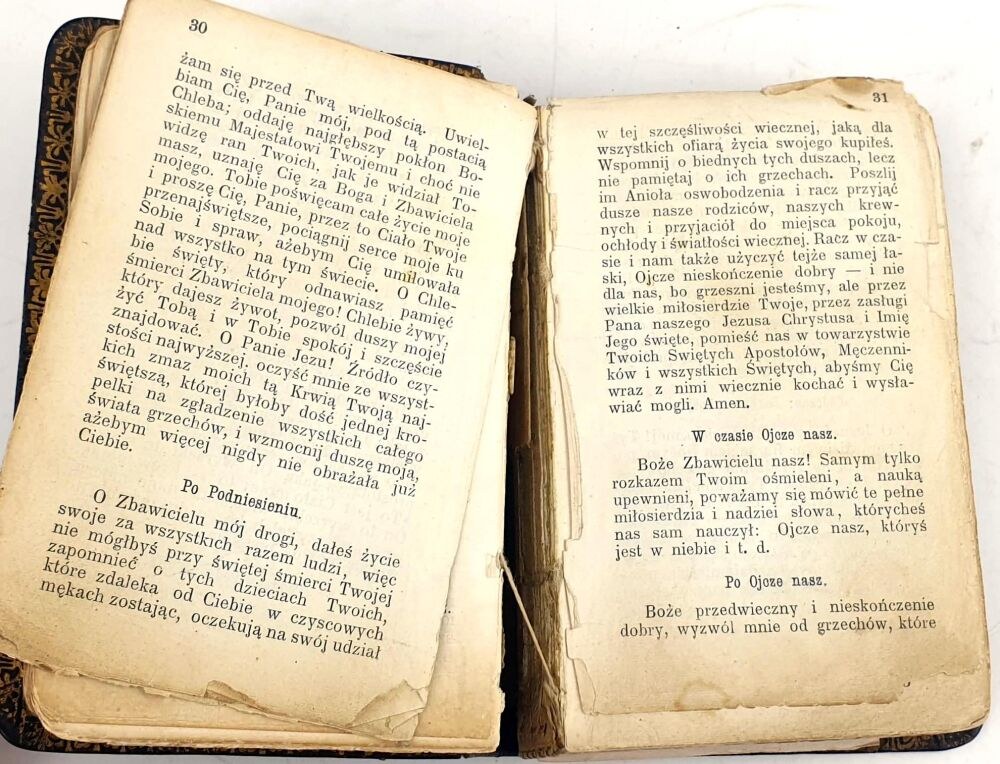 30
żam się przed Twą wielkością. Uwiel-
biam Cię, Panie mój, pod tą postacią
Chleba; oddaję najgłębszy pokłon Bo-
skiemu Majestatowi Twojemu i choć nie
widzę ran Twoich, jak je widział To-
masz, uznaję Cię za Boga i Zbawiciela
mojego. Tobie poświęcam całe życie moje
i proszę Cię, Panie, przez to Ciało Twoje
przenajświętsze, pociągnij serce moje ku
Sobie i spraw, ażebym Cię umiłowała
nad wszystko na tym świecie. O Chle-
bie święty, który odnawiasz pamięć
śmierci Zbawiciela mojego! Chlebie żywy,
który dajesz żywot, pozwól duszy mojej
żyć Tobą i w Tobie spokój i szczęście
znajdować. O Panie Jezu! Źródło czy-
stości najwyższej. oczyść mnie ze wszyst-
kich zmaz moich tą Krwią Twoją naj-
świętszą, której byłoby dość jednej kro-
pelki na zgładzenie wszystkich całego
świata grzechów, i wzmocnij duszę moją,
ażebym więcej nigdy nie obrażała już
Ciebie.
Po Podniesieniu.
O Zbawicielu mój drogi, dałeś życie
swoje za wszystkich razem ludzi, więc
nie mógłbyś przy świętej śmierci Twojej
zapomnieć o tych dzieciach Twoich,
które zdaleka od Ciebie w czyscowych
mękach zostając, oczekują na swój udział
31
w tej szczęśliwości wiecznej, jaką dla
wszystkich ofiarą życia swojego kupiłeś.
Wspomnij o biednych tych duszach, lecz
nie pamiętaj o ich grzechach. Poszlij
im Anioła oswobodzenia i racz przyjąć
dusze nasze rodziców, naszych krew-
nych i przyjaciół do miejsca pokoju,
ochłody i światłości wiecznej. Racz w cza-
sie i nam także użyczyć tejże samej ła-
ski, Ojcze nieskończenie dobry — i nie
dla nas, bo grzeszni jesteśmy, ale przez
wielkie miłosierdzie Twoje, przez zasługi
Pana naszego Jezusa Chrystusa i Imię
Jego święte, pomieść nas w towarzystwie
Twoich Swiętych Apostołów, Męczenni-
ków i wszystkich Świętych, abyśmy Cię
wraz z nimi wiecznie kochać i wysła-
wiać mogli. Amen.
W czasie Ojcze nasz.
Boże Zbawicielu nasz! Samym tylko
rozkazem Twoim ośmieleni, a nauką
upewnieni, poważamy się mówić te pełne
miłosierdzia i nadziei słowa, którycheś
nas sam nauczył: Ojcze nasz, któryś
jest w niebie i t. d.
Po Ojcze nasz.
Boże przedwieczny i nieskończenie
dobry, wyzwól mnie od grzechów, które